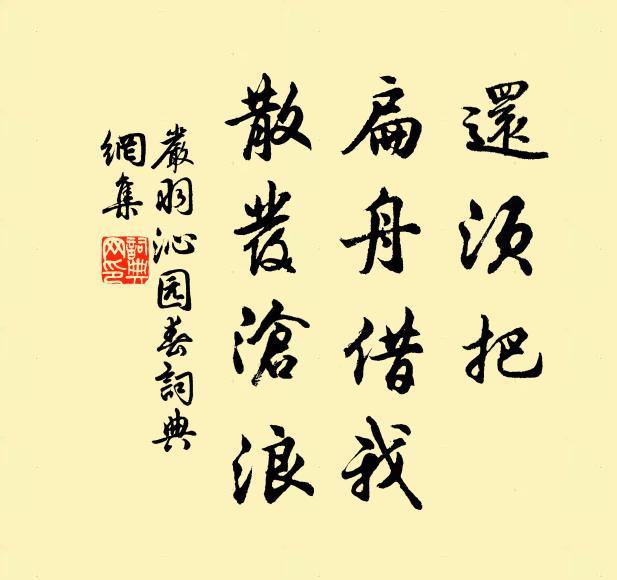 還須把
扁舟借我
散發滄浪
嚴羽沁园春詞典
網集
詞典网印